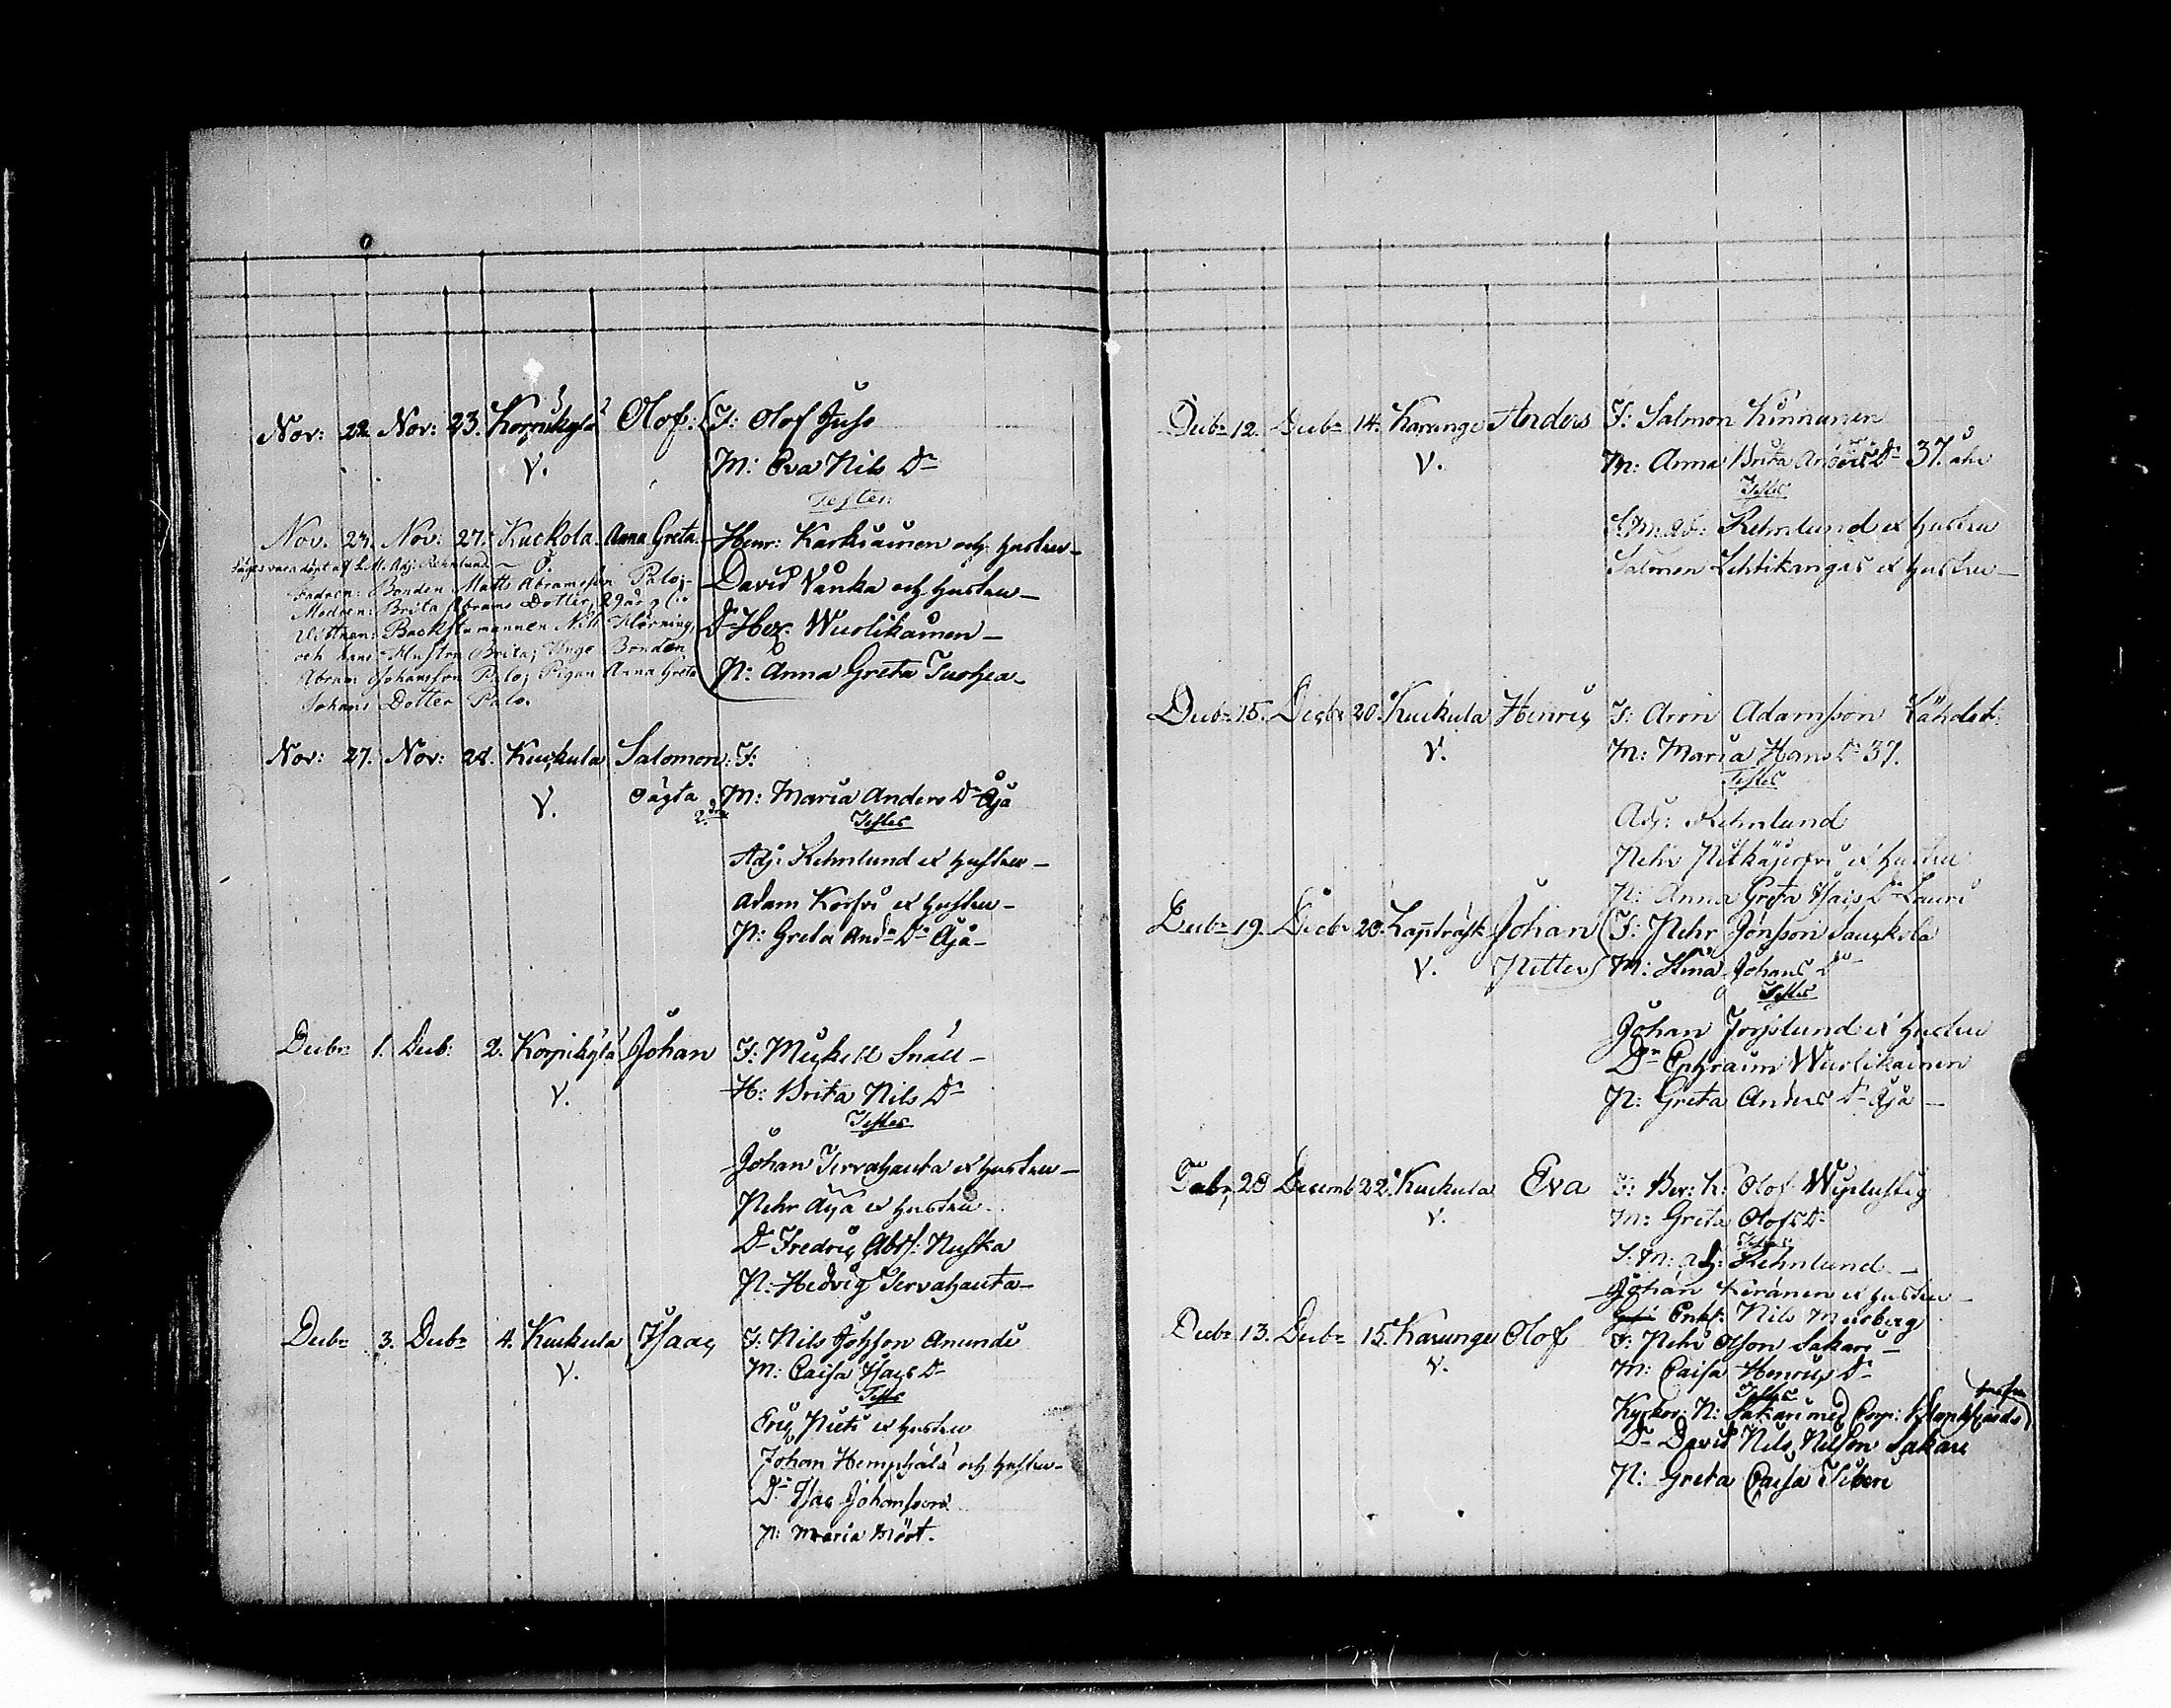 Nov: 22. Nov: 23. Korpikylä Olof: F: Olof Juho
V. M: Eva Nils Dr
Testes:
Henr: Karkiainen och hustru
David Vanka och hustru
Dr Hex. Wuolikainen
P: Anna Greta Tuohea
Nov. 23. Nov: 27. Kuckola Anna Greta
Säges vara döpt af S. M. Adj. Rehnlund
Fadren: Bonden Matts Abramsson Palo;
Modren: Brita Abrams Dotter, 29 år
Vittnen: Backstumannen Nils Hörning,
och hans Hustru Brita; Unge Bonden
Abram Johansson Palo; Pigan Anna Greta
Johans Dotter Palo.
Nov: 27. Nov: 28. Kuckula Salomon F:
V. Oägta 2:dra M: Maria Anders Dr Äjä
Testes
Adj: Rehnlund et hustru
Adam Korfvi et hustru
P: Greta And. Dr Äjä
Decbr 1. Decb: 2. Korpikylä Johan F: Mickell Snäll
V. H: Brita Nils Dr
Testes
Johan Tervahauta et hustru
Pehr Äyä et hustru
Dr Fredric Abrs: Ruska
P: Hedvig Tervahauta
Decbr 3. Decbr 4. Kuckula Isaac F: Nils Johsson Anundi
V. M: Caisa Isacs Dr
Testes
Eric Puti et hustru
Johan Hemphälä och hustru
Dr Isac Johansson
P: Maria Mört.
Decbr 12. Decbr 14. Karunge Anders F: Salmon Kinnunen
V. M: Anna Brita Anders Dr 37. åhr
Testes
S. M. Ad: Rehnlund et hustru
Salmon Lehtikangas et hustru
Decbr 15. Decbr 20. Kuckula Henric F: Arvi Adamsson Lähdet:
V. M: Maria Hans Dr 37.
Testes
Adj: Rehnlund
Pehr Pitkäjerfvi et hustru
P: Anna Greta Isacs Dr Lauri
Decbr 19. Decbr 20. Lappträsk Johan F: Pehr Jönsson Sauckola
V. Petter M: Stina Johans Dr
Testes
Johan Forslund et hustru
Dr Ephraim Wuolikainen
P: Greta Anders Dr Äjä
20 Decemb 22. Kuckula Eva F: Olof
V. M: Greta Olofs Dr
Testes
S: M: Adj: Rehnlund
Johan Keränen et hustru
Enkl: Nils Mosberg
Decbr 13. Decbr 15. Karunge Olof F: Pehr Olson Sakari
V. M: Caisa Henrics Dr
Testes
Kyrkov: N: Sakari med Corp: hustru
Dr David Nils Nilsson Sakari
P: Greta Caisa